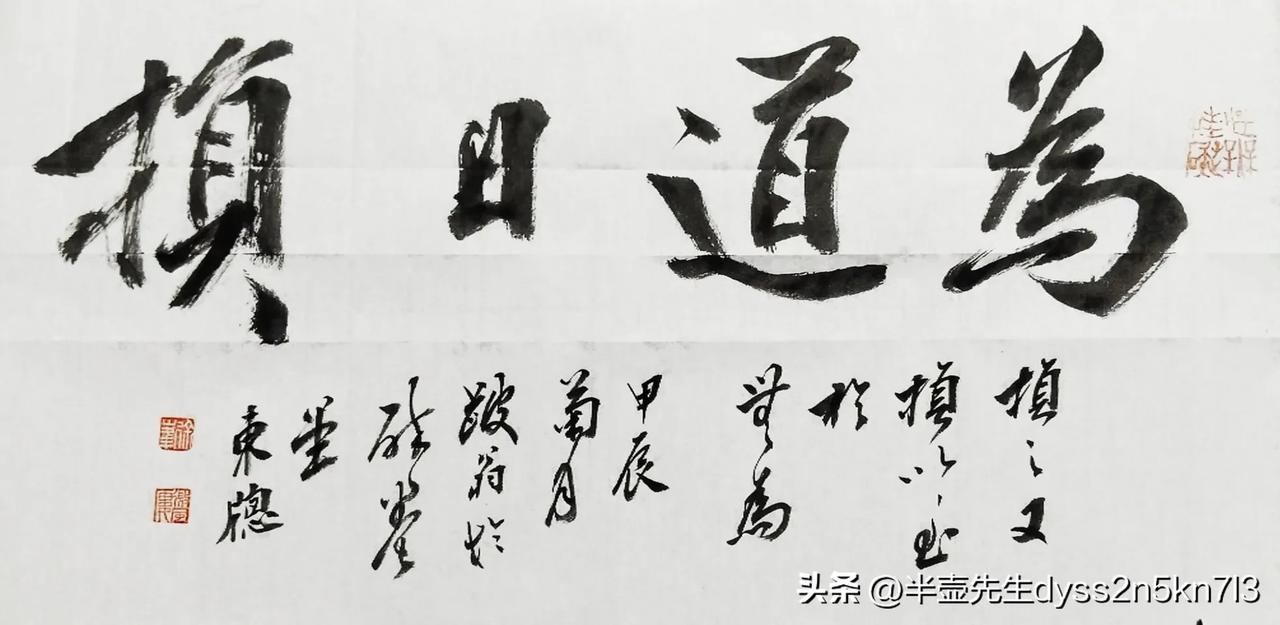 為道日損
損之又
損以至
於
無為
甲辰
菊月
跛翁於
堂
東牕
头条 @半壶先生dyss2n5kn7l3